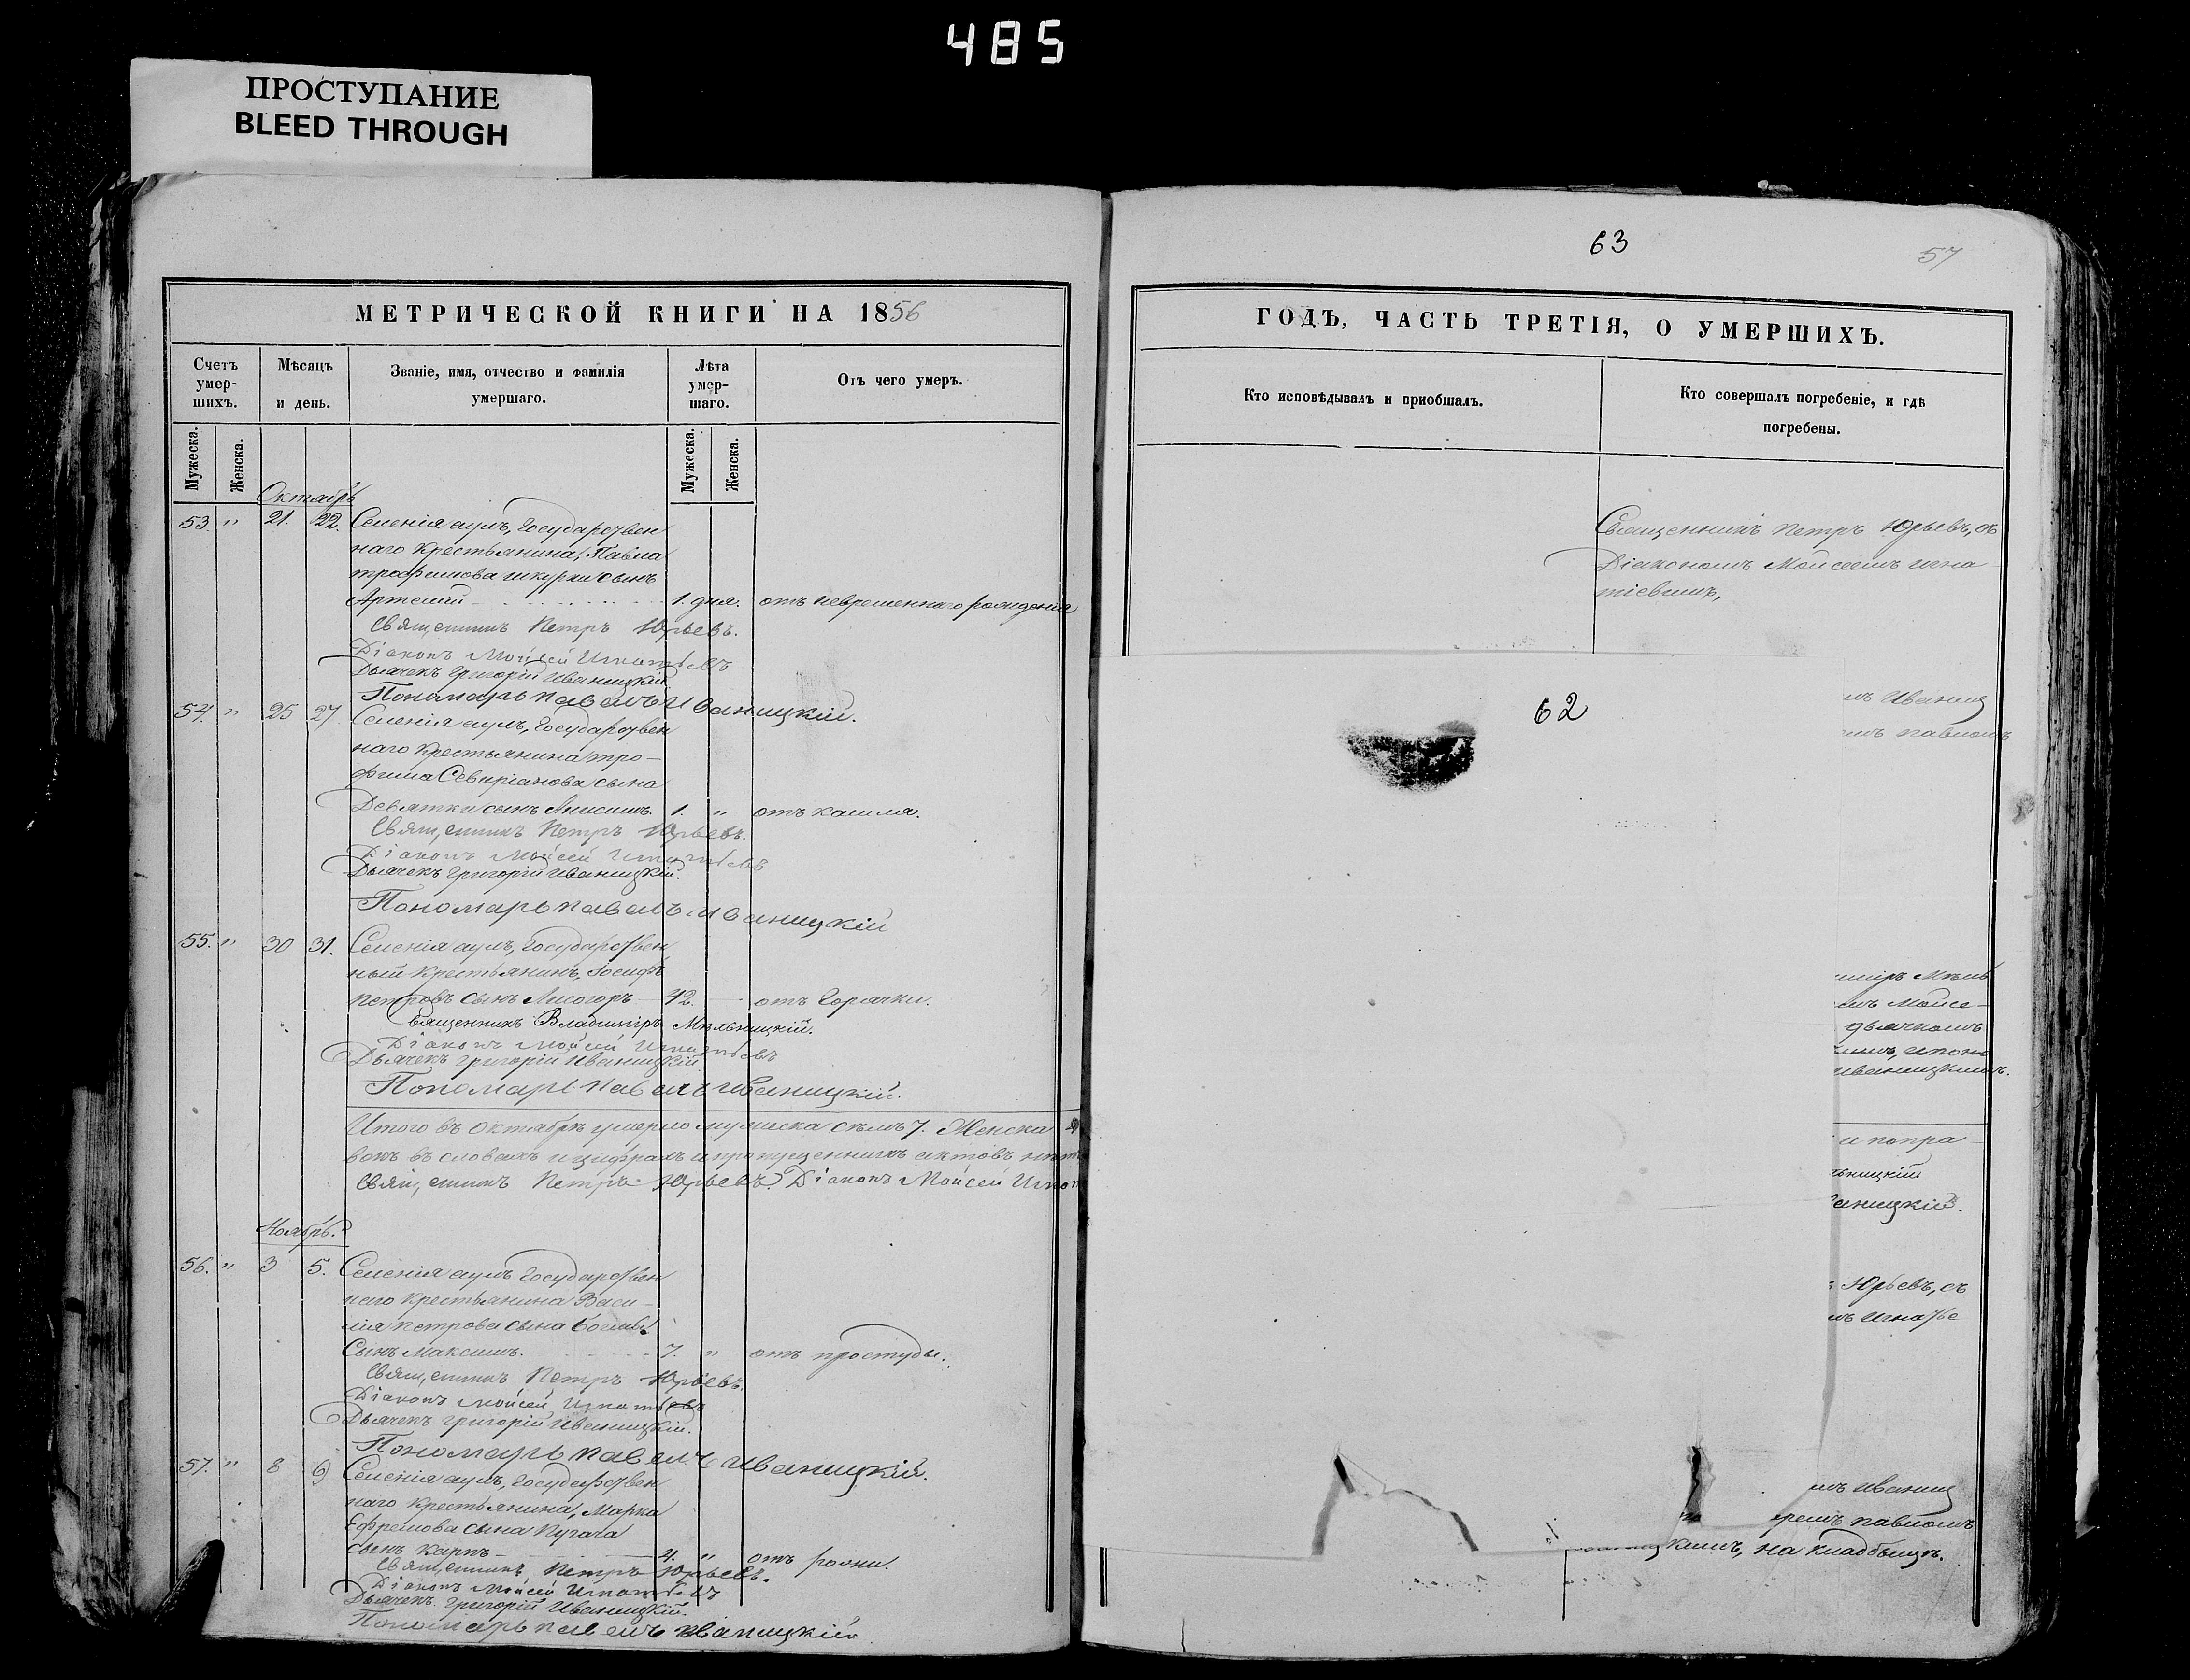 485
ПРОСТУПАНИЕ
BLEED THROUGH
МЕТРИЧЕСКОЙ КНИГИ НА 1856
Счетъ умер-шихъ.
Мѣсяцъ и день.
Званіе, имя, отчество и фамилія умершаго.
Лѣта умер-шаго.
Отъ чего умеръ.
Мужеска. Женска. Мужеска. Женска.
Октябрь
53. " 21. 22. Селенія аулъ, Государствен
наго крестьянина, Павла
трофимова шкурки сынъ
Артемій 1. дня. отъ невременнаго рожденія
Священникъ Петръ Юрьевъ.
Діаконъ Мойсей Игнатьевъ
Дьячекъ Григорій Иваницкій
Пономарь Павелъ Иваницкій.
54. " 25 27 Селенія аулъ, Государствен
наго крестьянина тро-
фима Севиріанова сына
Девятки сынъ Анисимъ. 1. " отъ кашля.
Священникъ Петръ Юрьевъ.
Діаконъ Мойсей Игнатьевъ
Дьячекъ Григорій Иваницкій.
Пономарь Павелъ Иваницкій
55. " 30 31. Селенія аулъ, Государствен
ный крестьянинъ, Іосифъ
Петровъ сынъ Лисогоръ 42. отъ горячки.
Священникъ Владимиръ Мѣльницкій.
Діаконъ Мойсей Игнатьевъ
Дьячекъ Григорій Иваницкій
Пономарь Павелъ Иваницкій.
Итого въ Октябрѣ умерло мужеска семь 7. Женска
вокъ въ словахъ и цифрахъ и пропущенныхъ актовъ
Священникъ Петръ Юрьевъ. Діаконъ Мойсей
Ноябрь.
56. " 3 5. Селенія аулъ Государствен
наго крестьянина Васи-
лія Петрова сына
Сынъ Максимъ. 7. " отъ простуды.
Священникъ Петръ Юрьевъ.
Діаконъ Мойсей Игнатьевъ
Дьячекъ Григорій Иваницкій.
Пономарь Павелъ Иваницкій.
57. " 8 9 Селенія аулъ, Государствен
наго крестьянина, Марка
Ефремова сына Пугача
сынъ Карпъ 4. " отъ рожи.
Священникъ Петръ Юрьевъ.
Діаконъ Мойсей Игнатьевъ
Дьячекъ Григорій Иваницкій.
Пономарь Павелъ Иваницкій
63
57
ГОДЪ, ЧАСТЬ ТРЕТІЯ, О УМЕРШИХЪ.
Кто исповѣдывалъ и приобщалъ.
Кто совершалъ погребеніе, и гдѣ погребены.
Священникъ Петръ Юрьевъ, съ
Діакономъ Мойсеемъ Игна
тіевымъ,
62
мъ Иваниц
Павломъ
Мѣль
Мойсе-
дьячкомъ
Иваницкимъ.
и попра
льницкій
ваницкій.
Юрьевъ, съ
Игнатье
мъ Иваниц
ремъ Павломъ
цкимъ, на кладбыщѣ.